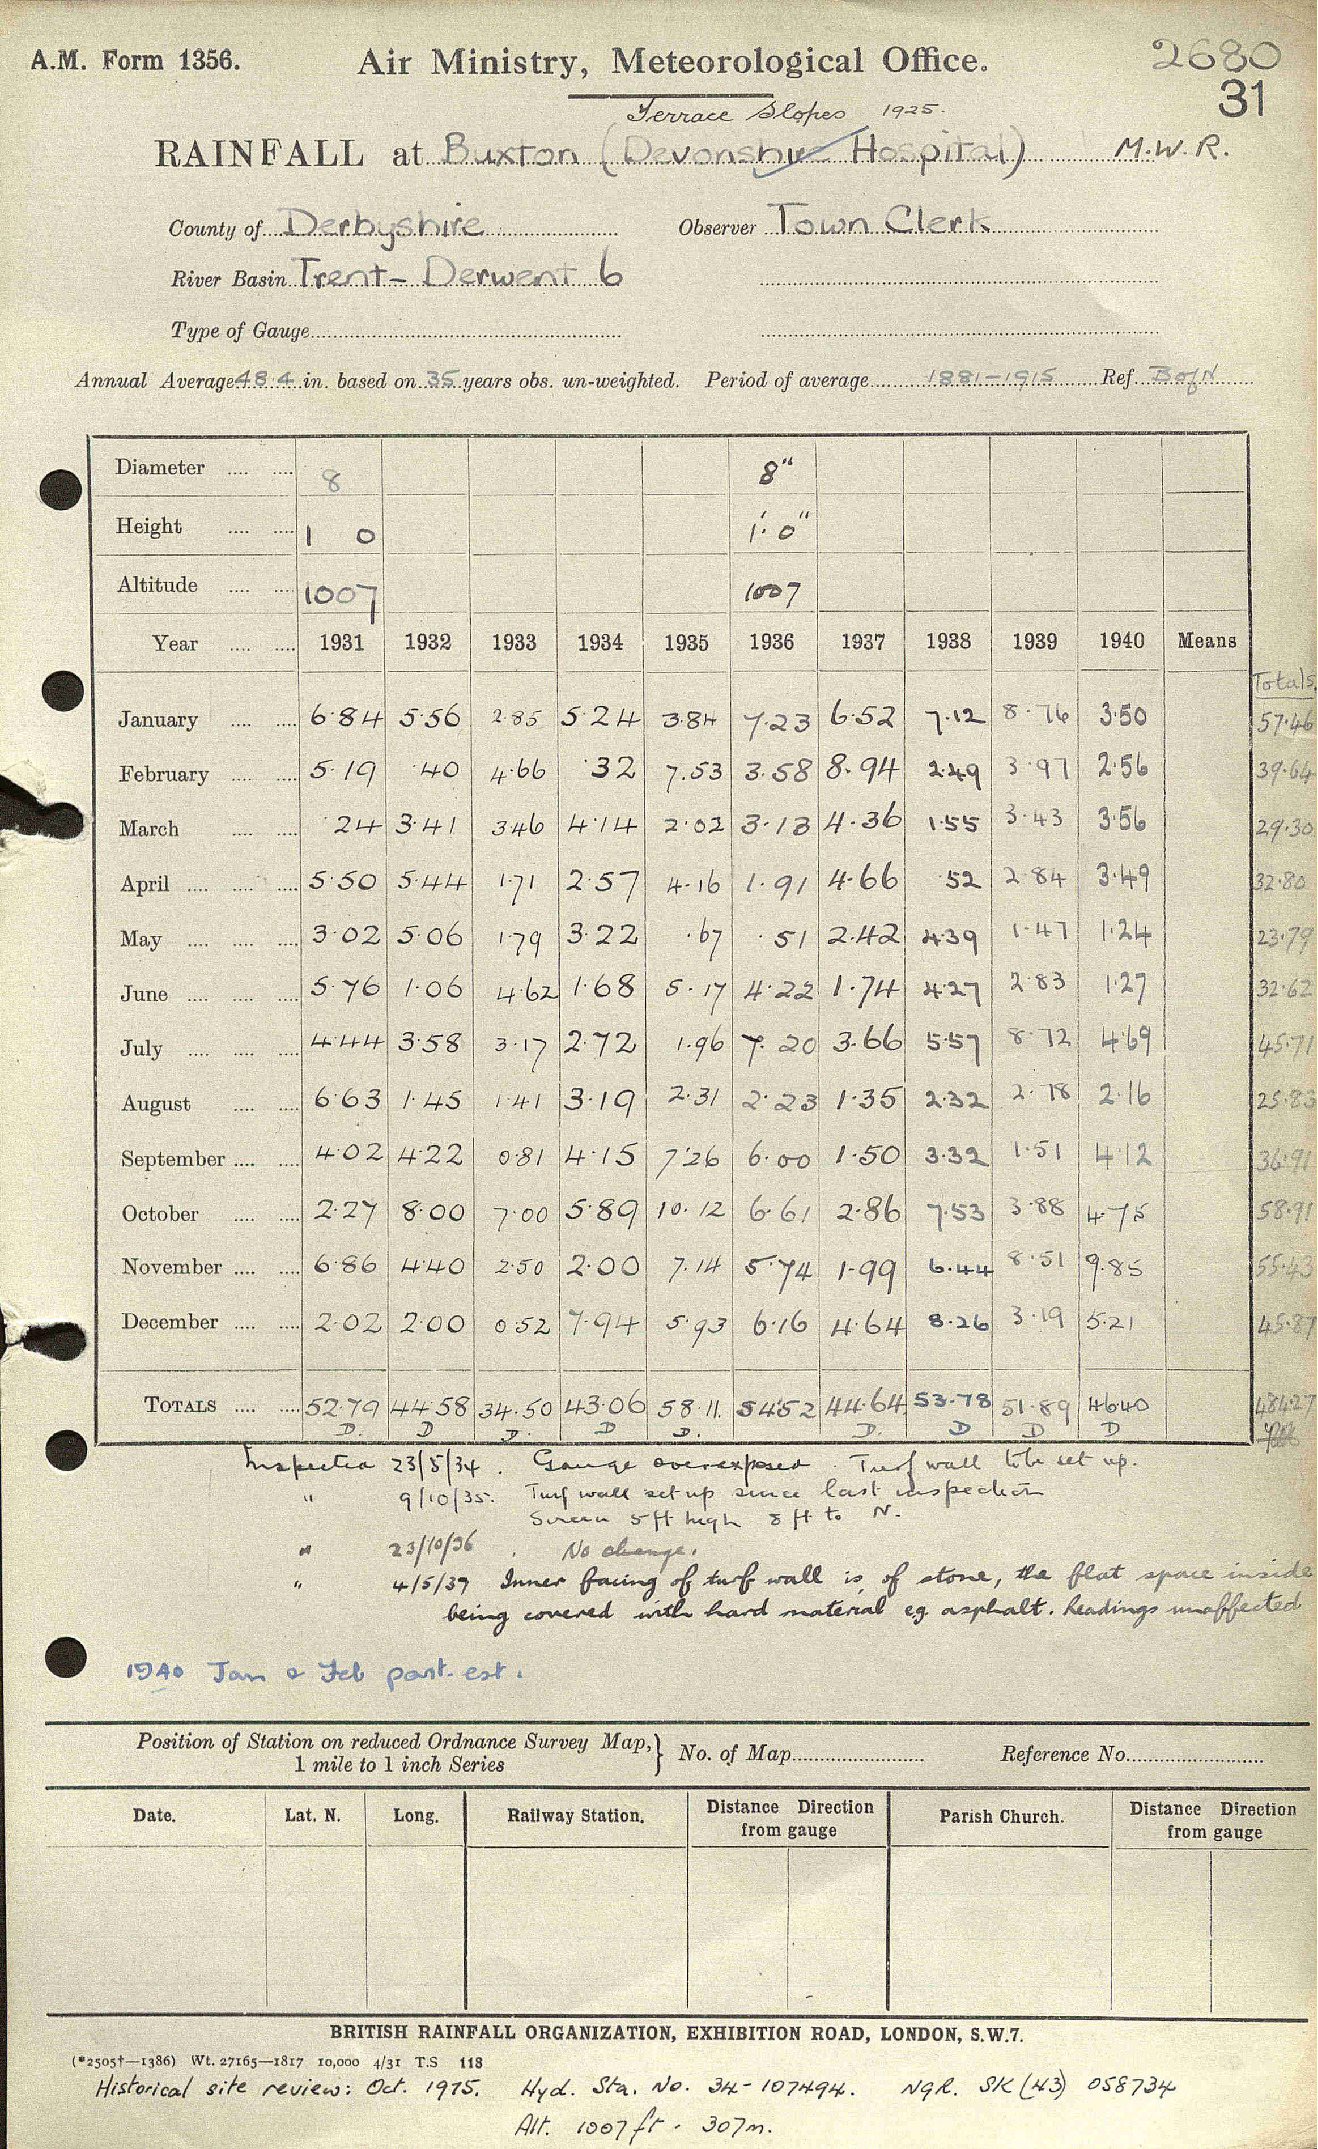 A.M. Form 1356.
Air Ministry, Meteorological Office.
2680
31
Terrace Slopes 1925.
RAINFALL at Buxton (Devonshire Hospital) M.W.R.
County of Derbyshire Observer Town Clerk
River Basin Trent - Derwent 6
Type of Gauge
Annual Average 48.4 in. based on 35 years obs. un-weighted. Period of average 1881-1915 Ref B of N
Diameter 8 8"
Height 1 0 1' 0"
Altitude 1007 1007
Year 1931 1932 1933 1934 1935 1936 1937 1938 1939 1940 Means Totals.
January 6.84 5.56 2.85 5.24 3.84 7.23 6.52 7.12 8.76 3.50 57.46
February 5.19 .40 4.66 .32 7.53 3.58 8.94 2.49 3.97 2.56 39.64
March .24 3.41 3.46 4.14 2.02 3.13 4.36 1.55 3.43 3.56 29.30
April 5.50 5.44 1.71 2.57 4.16 1.91 4.66 .52 2.84 3.49 32.80
May 3.02 5.06 1.79 3.22 .67 .51 2.42 4.39 1.47 1.24 23.79
June 5.76 1.06 4.62 1.68 5.17 4.22 1.74 4.27 2.83 1.27 32.62
July 4.44 3.58 3.17 2.72 1.96 7.20 3.66 5.57 8.72 4.69 45.71
August 6.63 1.45 1.41 3.19 2.31 2.23 1.35 2.32 2.78 2.16 25.83
September 4.02 4.22 0.81 4.15 7.26 6.00 1.50 3.32 1.51 4.12 36.91
October 2.27 8.00 7.00 5.89 10.12 6.61 2.86 7.53 3.88 4.75 58.91
November 6.86 4.40 2.50 2.00 7.14 5.74 1.99 6.44 8.51 9.85 55.43
December 2.02 2.00 0.52 7.94 5.93 6.16 4.64 8.26 3.19 5.21 45.87
TOTALS 52.79 44.58 34.50 43.06 58.11. 54.52 44.64 53.78 51.89 46.40 484.27
D. D D. D D. D. D D D
Inspected 23/5/34. Gauge overexposed. Turf wall to be set up.
" 9/10/35. Turf wall set up since last inspection
Screen 5 ft high 8 ft to N.
" 23/10/36. No change.
" 4/5/39 Inner facing of turf wall is of stone, the flat space inside
being covered with hard material eg asphalt. Readings unaffected
1940 Jan & Feb part. est.
Position of Station on reduced Ordnance Survey Map,
1 mile to 1 inch Series
No. of Map Reference No.
Date. Lat. N. Long. Railway Station. Distance Direction from gauge Parish Church. Distance Direction from gauge
BRITISH RAINFALL ORGANIZATION, EXHIBITION ROAD, LONDON, S.W.7.
(*2505†—1386) Wt. 27165—1817 10,000 4/31 T.S 118
Historical site review: Oct. 1975. Hyd. Sta. No. 34-107494. NGR. SK (43) 058734
Alt. 1007 ft. 307m.